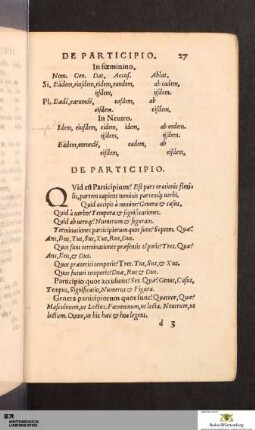 DE PARTICIPIO. 27
In fœminino.
Nom. Gen. Dat. Accus. Ablat.
Si, Eadem, eiusdem, eidem, eandem, ab eadem,
eisdem. eisdem.
Pl, Eædē, earundē, easdem, ab
eisdem. eisdem,
In Neutro.
Idem, eiusdem, eidem, idem, ab eodem.
eisdem, eisdem.
Eadem, eorundē, eadem, ab
eisdem, eisdem,
DE PARTICIPIO.
QVid est Participium? Est pars orationis
tis, partem capiens nominis partemq; verbi.
Quid accipit à nomine? Genera & casus,
Quid à verbo? Tempora & significationes.
Quid ab utroq;? Numerum & figuram.
Terminationes participiorum quot sunt? Septem. Quæ?
Ans, Ens, Tus, Sus, Xus, Rus, Dus.
Quot sunt terminationes præsentis temporis? Tres. Quæ?
Ans, Ens, & Dus.
Quot præteriti temporis? Tres. Tus, Sus, & Xus.
Quot futuri temporis? Duæ, Rus & Dus.
Participio quot accidunt? Sex. Quæ? Genus, Casus,
Tempus, Significatio, Numerus & Figura.
Genera participiorum quot sunt? Quatuor, Quæ?
Masculinum, ut Lectus. Fœmininum, ut lecta. Neutrum, ut
lectum. Omne, ut hic hæc & hoc legens.
d 3
WÜRTTEMBERGISCHE
LANDESBIBLIOTHEK
Baden-Württemberg